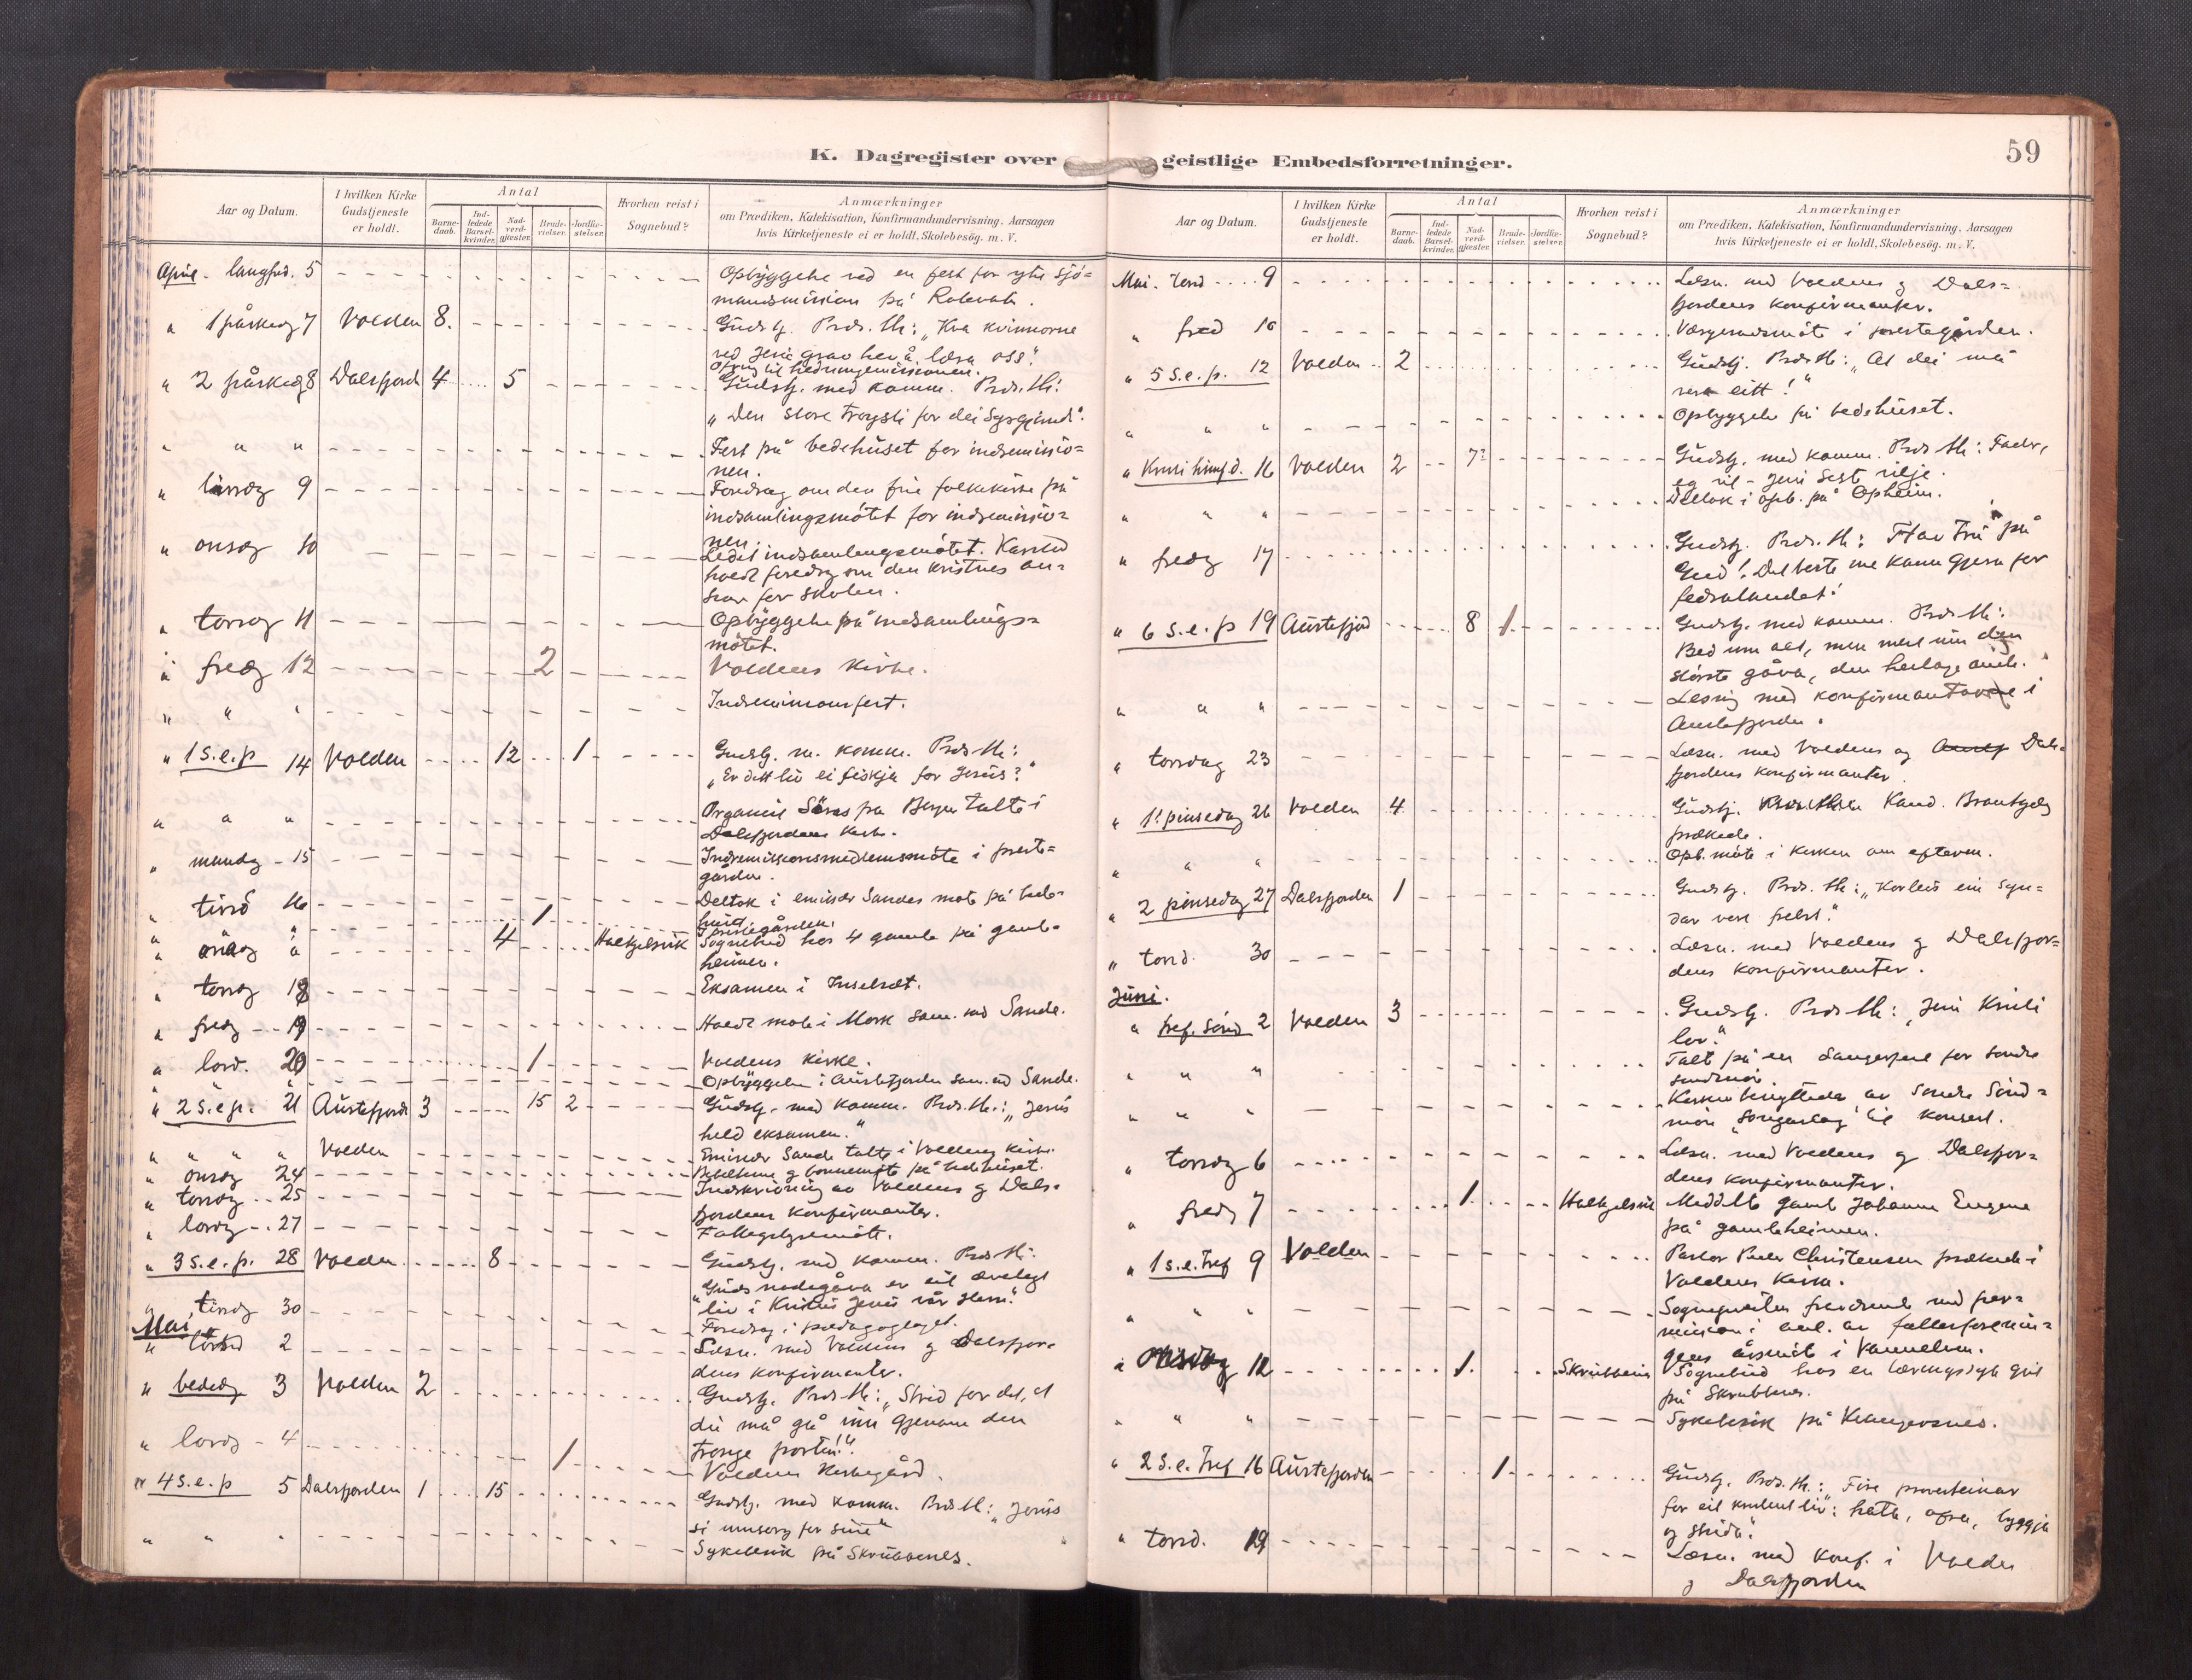 K. Dagregister over geistlige Embedsforretninger.
59
Aar og Datum.
I hvilken Kirke Gudstjeneste er holdt.
Antal
Barnedaab.
Indledede Barselkvinder.
Nadverdgjester.
Brudevielser.
Jordfæstelser.
Hvorhen reist i Sognebud?
Anmærkninger
om Prædiken, Katekisation, Konfirmandundervisning. Aarsagen
hvis Kirketjeneste ei er holdt, Skolebesög. m. V.
April. langfred. 5 Opbyggelse ved en fest for ytre sjö=
mandsmission på
" 1 påskedg 7 Volden 8. Gudstj. Præd. th: "Kva kvinnorne
ved Jesu grav hev å læra oss."
Ofring til hedningemissionen.
" 2 påskedg 8 Dalsfjord 4 5 Gudstj. med komm. Præd. th:
"Den store troysti for dei Syrgjande".
" " " Fest på bedehuset for indremissio=
nen.
" tirsdg 9 Foredrag om den frie folkekirke på
indsamlingsmötet for indremissio=
nen.
" onsdg 10 Ledet indsamlingsmötet.
holdt foredrag om den kristnes an=
svar for skolen.
" torsdg 11 Opbyggelse på indsamlings=
mötet.
" fredg 12 2 Voldens kirke.
" " " Indremissionsfest.
" 1 S.e.p 14 Volden 12 1 Gudstj. m. komm. Præd. th:
"Er ditt liv ei fiskja for Jesus?"
" " " Organist fra Bergen talte i
Dalsfjordens kirke.
" mandg 15 Indremissionsmedlemsmöte i preste=
gården.
" tirsd 16 Deltok i emissær Sandes möte på bede=
huset.
" " " 1 I prestegården.
" onsdg " 4 Halkjelsvik Sognebud hos 4 gamle på gamle=
heimen.
" torsdg 18 Eksamen i
" fredg 19 Holdt möte i Mork sam. med Sande.
" lörd. 20 1 Voldens kirke.
Opbyggelse i Austefjorden sam. med Sande.
" 2 S.e.p. 21 Austefjord 3 15 2 Gudstj. med komm. Præd. th.: "Jesus
held eksamen."
" " " Volden Emissær Sande talte i Voldens kirke.
" onsdg 24 Bibeltime og bönnemöte på bedehuset.
" torsdg 25 Indskrivning av Voldens og Dals=
fjordens konfirmanter.
" lördg 27
" 3 S.e.p. 28 Volden 8 Gudstj. med komm. Præd. th:
"Guds nådegåva er eit ævelegt
liv i Kristus Jesus vår Herre."
" tirsdg 30 Foredrag i pædagoglaget.
Mai
" torsd 2 Læsn. med Voldens og Dalsfjor=
dens konfirmanter.
" bededg 3 Volden 2 Gudstj. Præd. th: "Strid for det, at
du må gå inn gjenom den
tronge porten!"
" lördg 4 1 Voldens kirkegård.
" 4 S.e.p 5 Dalsfjorden 1 15 Gudstj. med komm. Præd. th: "Jesus
si umsorg for sine"
" " " Sykebesök på Skrubbenes.
Mai. torsd 9 Læsn. med Voldens og Dals=
fjordens konfirmanter.
" fred 10 Værgerådsmöte i prestegården.
" 5 S.e.p. 12 Volden 2 Gudstj. Præd. th: "At dei må
vera eitt!"
" " " Opbyggelse på bedehuset.
" Kristi himfd. 16 Volden 2 7? Gudstj. med komm. Præd. th: Fader,
eg vil - Jesu sidste vilje.
" " " Deltok i opb. på Opheim.
" fredg 17 Gudstj. Præd. th: Hav tru på
Gud! Det beste me kann gjera for
fedralandet!
" 6 S.e.p 19 Austefjord 8 1 Gudstj. med komm. Præd. th:
Bed um alt, men mest um den
störste gåva, den heilage ande."
" " " Lesing med konfirmantarne i
Austefjorden.
" torsdag 23 Læsn. med Voldens og Dals=
fjordens konfirmanter.
" 1. pinsedag 26 Volden 4 Gudstj. Kand.
prækede.
" " " Opb. möte i kirken om efterm.
" 2 pinsedag 27 Dalsfjorden 1 Gudstj. Præd. th: "Korleis ein syn=
dar vert frelst."
" torsd. 30 Læsn. med Voldens og Dalsfjor=
dens konfirmanter.
Juni.
" tref. Sönd 2 Volden 3 Gudstj. Præd. th: "Jesu Kristi
lov."
" " " Talt på en sangerfest for söndre
söndmör.
" " " Kirken benyttedes av Söndre Sönd=
mör songarlag til konsert.
" torsdg 6 Læsn. med Voldens og Dalsfjor=
dens konfirmanter.
" fredg 7 1 Halkjelsvik Meddelte gamle Johanne
på gamleheimen.
" 1 s.e. tref 9 Volden Pastor Peder Christensen prækede i
Voldens kirke.
" " " Sognepresten fraværende med per=
mission i anl. av fællesforenin=
gens årsmöte i Vannelven.
" onsdag 12 1 Skrubbenes Sognebud hos en tæringssyk gut
på Skrubbenes.
" " " Sykebesök på
" 2 S.e. Tref 16 Austefjorden 1 Gudstj. Præd. th: Fire
for eit kristent liv: hata, ofra, byggja
og strida."
" torsd. 19 Læsn. med konf. i Volden
og Dalsfjorden